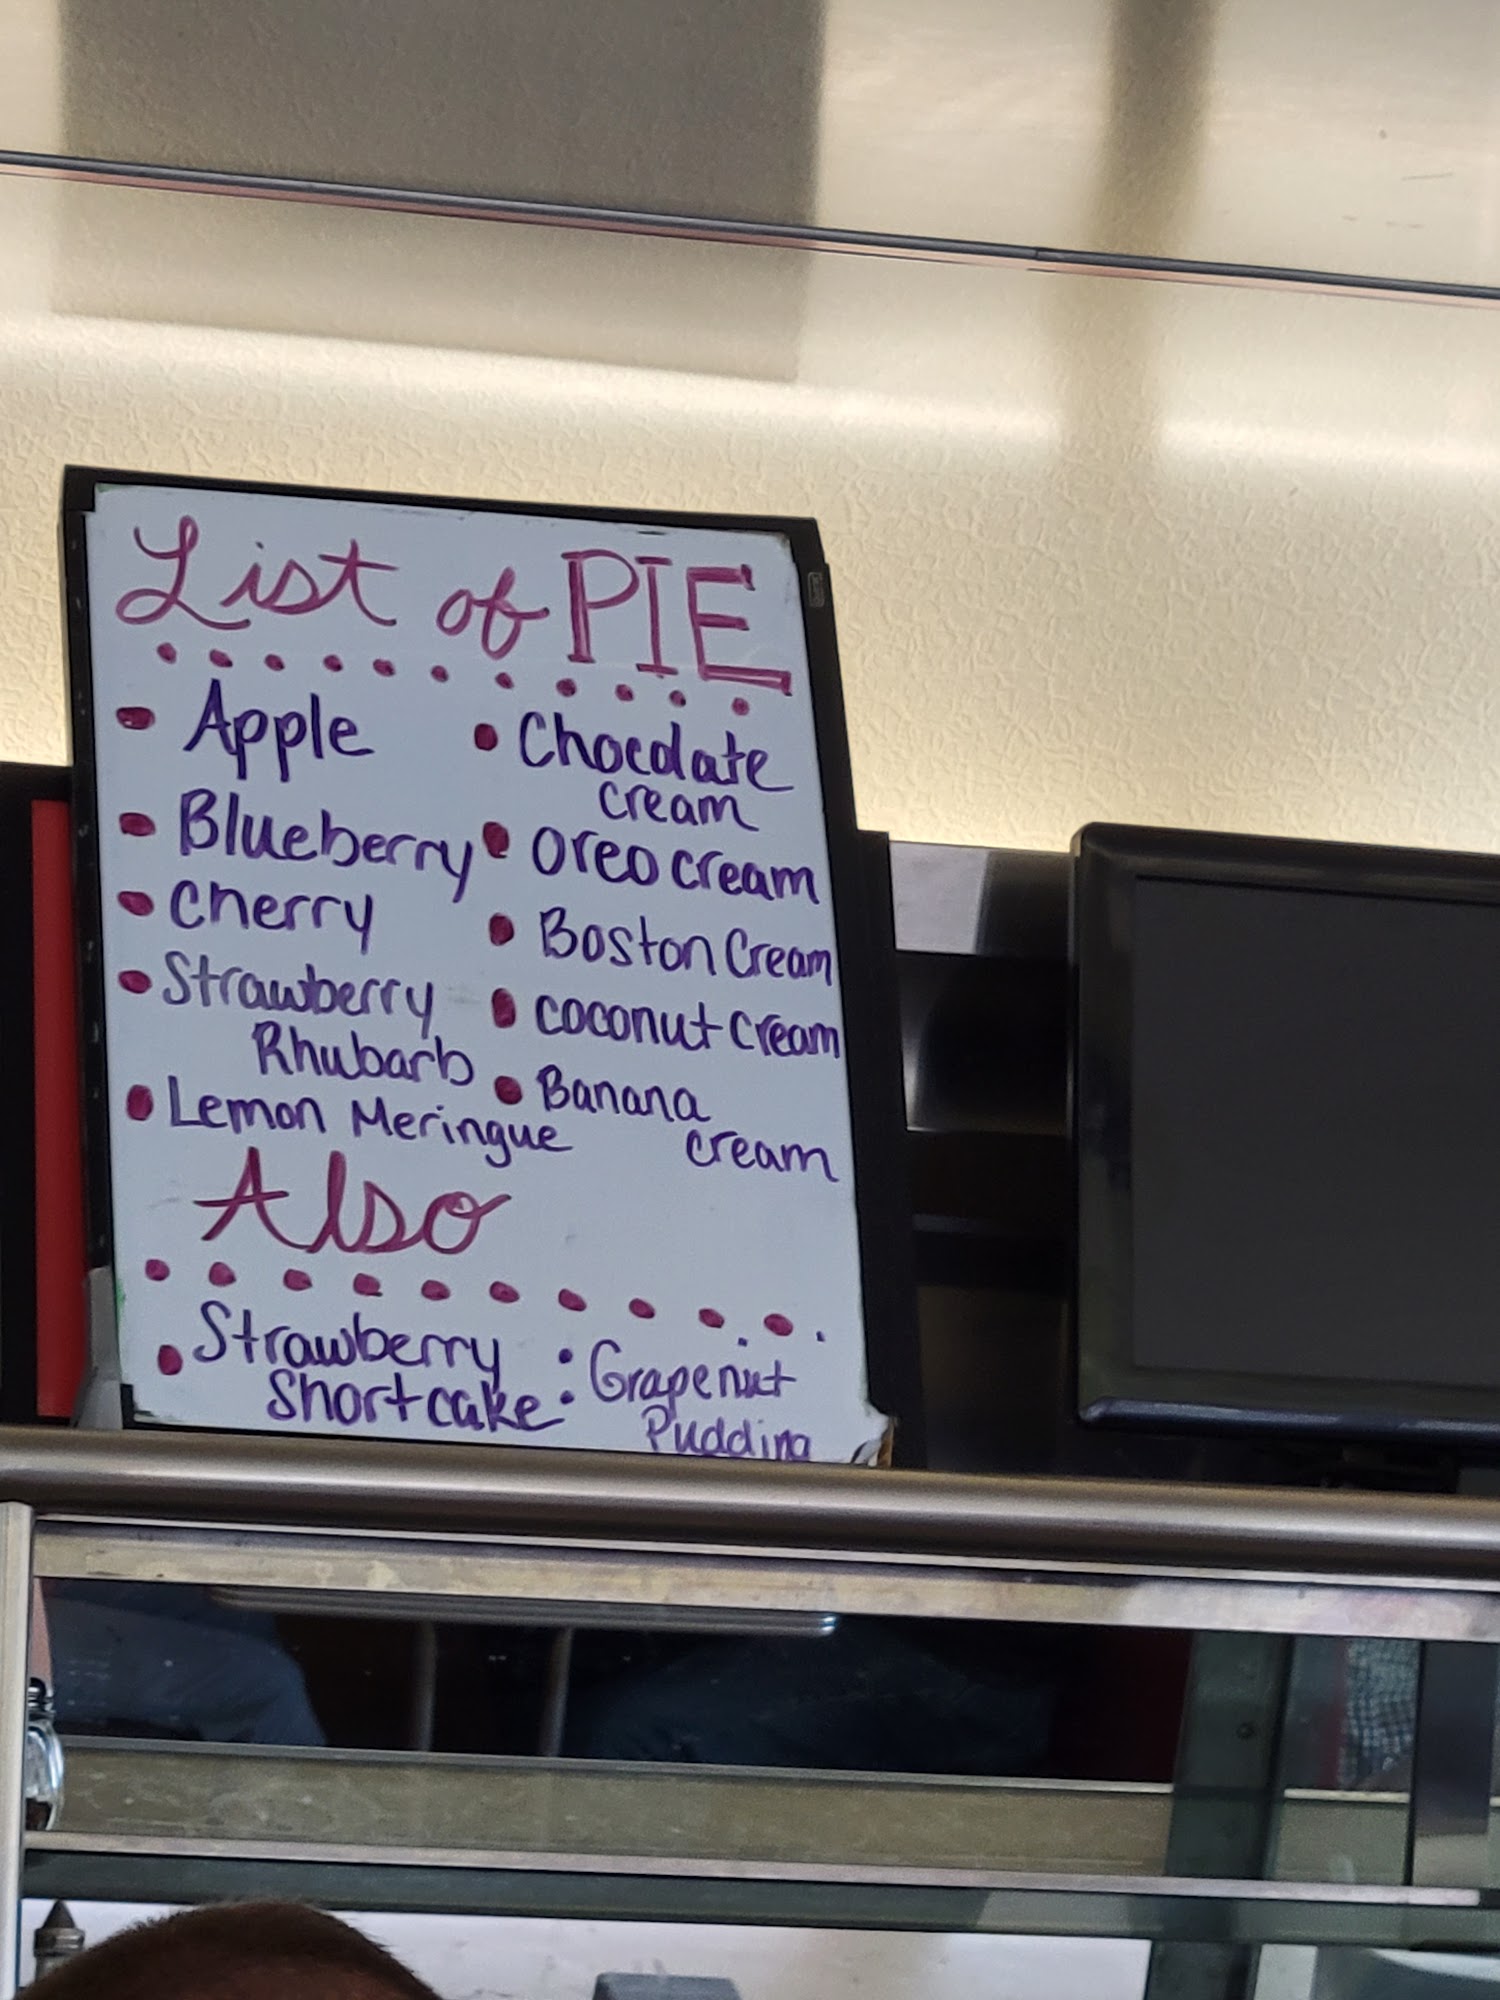 List of PIE
• Apple
• Blueberry
• Cherry
• Strawberry
Rhubarb
• Lemon Meringue
• Chocolate
cream
• Oreo cream
• Boston Cream
• coconut cream
• Banana
cream
Also
• Strawberry
Shortcake
: Grapenut
Pudding